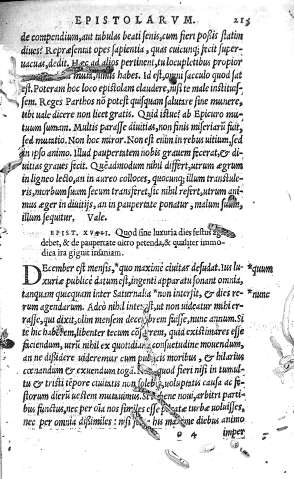 EPISTOLARVM. 215
de compendium, aut tabulas beati senis, cum fieri possis statim
diues? Repræsentat opes sapientia, quas cuicunq; fecit super-
vacuas, dedit. Hæc ad alios pertinent, tu locupletibus propior
muta, nimis habes. Id est, omni sæculo quod sat
est. Poteram hoc loco epistolam claudere, nisi te male instituis-
sem. Reges Parthos nō potest quisquam salutare sine munere,
tibi uale dicere non licet gratis. Quid istuc? ab Epicuro mu-
tuum sumam. Multis parasse diuitias, non finis miseriarū fuit,
sed mutatio. Non hoc miror. Non est enim in rebus uitium, sed
in ipso animo. Illud paupertatem nobis grauem fecerat, & di-
uitias graues fecit. Quēadmodum nihil differt, utrum ægrum
in ligneo lectio, an in aureo colloces, quocunq; illum transtule-
ris, morbum suum secum transferet, sic nihil refert, utrum ani-
mus æger in diuitijs, an in paupertate ponatur, malum suum,
illum sequitur. Vale.
EPIST. Quod sine luxuria dies festus
debet, & de paupertate uictu petenda, & qualiter immo-
dica ira gignit insaniam.
December est mensis, *quo maxime ciuitas desudat. Ius lu- *quum
xuriæ publicæ datum est, ingenti apparatu sonant omnia,
tanquam quicquam inter Saturnalia *non intersit, & dies re- *nunc
rum agendarum. Adeo nihil interest, ut non uideatur mihi er-
rasse, qui dixit, olim mensem decembrem fuisse, nunc annum. Si
te hic haberem, libenter tecum conferrem, quid existimares esse
faciendum, utrū nihil ex quotidiana consuetudine mouendum,
an ne dissidere uideremur cum publicis moribus, & hilarius
cœnandum & exuendum togā. Nam quod fieri nisi in tumul-
tu & tristi tēpore ciuitatis non solebat, uoluptatis causa ac fe-
storum dierū uestem mutauimus. Si te bene noui, arbitri parti-
bus functus, nec per oīa nos similes esse pileatæ turbæ uoluisses,
nec per omnia dissimiles: nisi his maxime diebus animo
imper